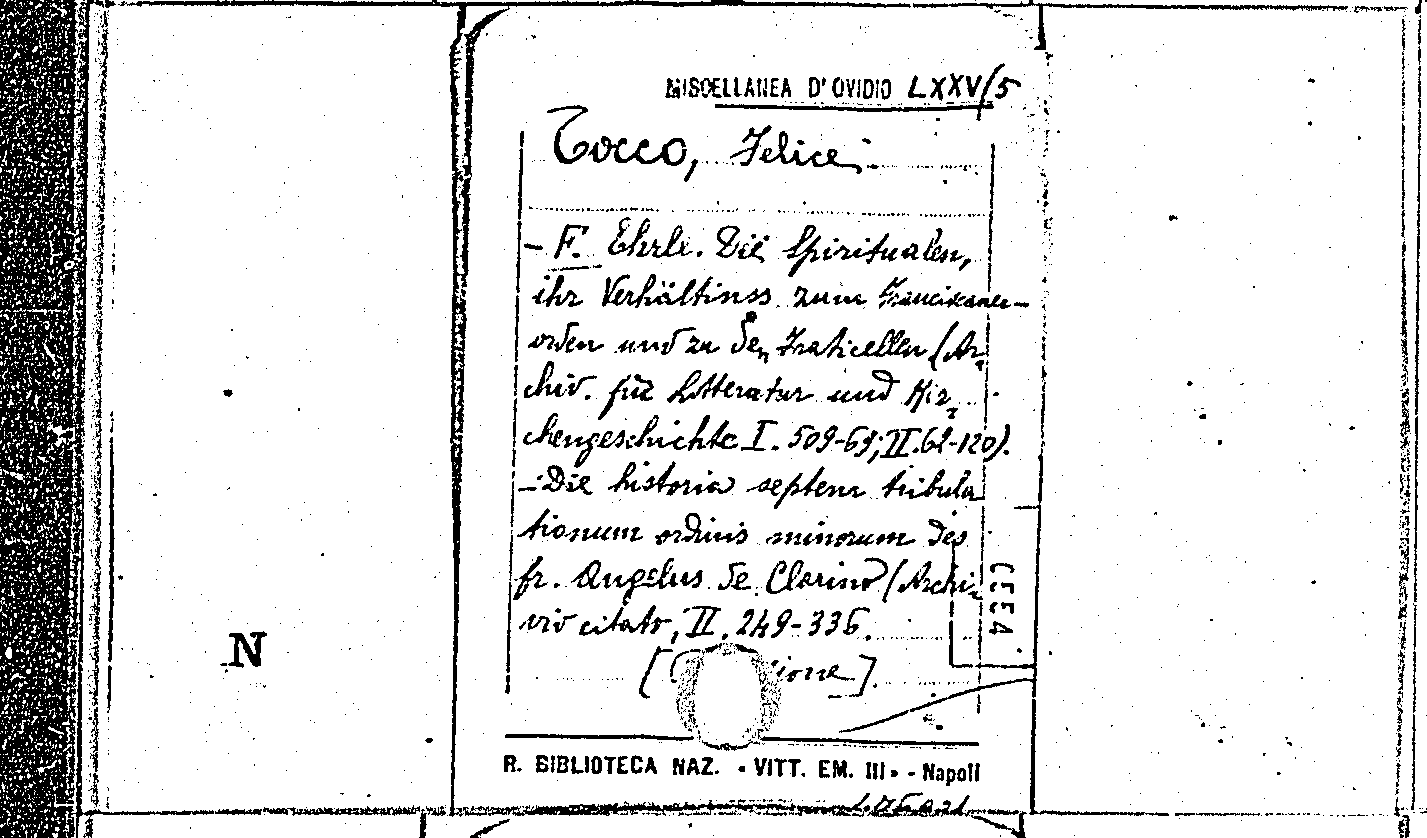 MISCELLANEA D'OVIDIO LXXV/5
Tocco, Felice
- F. Ehrle. Die Spiritualen,
ihr Verhältinss zum Franciskaner-
orden und zu den Fraticellen (Ar-
chiv. für Litteratur und Kir-
chengeschichte I. 509-69; II.62-120).
- Die historia septem tribula
tionum ordinis minorum des
fr. Angelus de Clarino (Archi-
vio citato, II. 249-336.
R. BIBLIOTECA NAZ. « VITT. EM. III » - Napoli
N